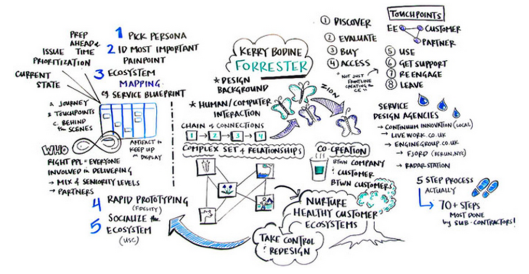 PREP
AHEAD &
TIME
ISSUE
PRIORITIZATION
CURRENT
STATE
1 PICK PERSONA
2 ID MOST IMPORTANT
PAINPOINT
3 ECOSYSTEM
MAPPING
OF SERVICE BLUEPRINT
A. JOURNEY
B. TOUCHPOINTS
C. BEHIND
the SCENES
ARTIFACT to
KEEP UP
on DISPLAY
WHO
RIGHT PPL - EVERYONE
INVOLVED in DELIVERING
→ MIX of SENIORITY LEVELS
→ PARTNERS
4 RAPID PROTOTYPING
(FIDELITY)
5 SOCIALIZE the
ECOSYSTEM
(USC)
KERRY BODINE
FORRESTER
* DESIGN
BACKGROUND
* HUMAN/COMPUTER
INTERACTION
ZION
CHAIN of CONNECTIONS
1 → 2 → 3 → 4
COMPLEX SET of RELATIONSHIPS
CO-CREATION
BTWN COMPANY
& CUSTOMER
BTWN CUSTOMERS
NURTURE
HEALTHY CUSTOMER
ECOSYSTEMS
TAKE CONTROL
& REDESIGN
1 DISCOVER
2 EVALUATE
3 BUY
4 ACCESS
* NOT JUST
FRONTLINE
CREATING the
CE *
TOUCHPOINTS
EE
CUSTOMER
PARTNER
5 USE
6 GET SUPPORT
7 RE ENGAGE
8 LEAVE
SERVICE
DESIGN AGENCIES
→ CONTINUUM INNOVATION (LOCAL)
→ LIVE WORK.CO.UK
→ ENGINEGROUP.CO.UK
→ RADARSTATION
5 STEP PROCESS
ACTUALLY
→ 70+ STEPS
MOST DONE
by SUB-CONTRACTORS!